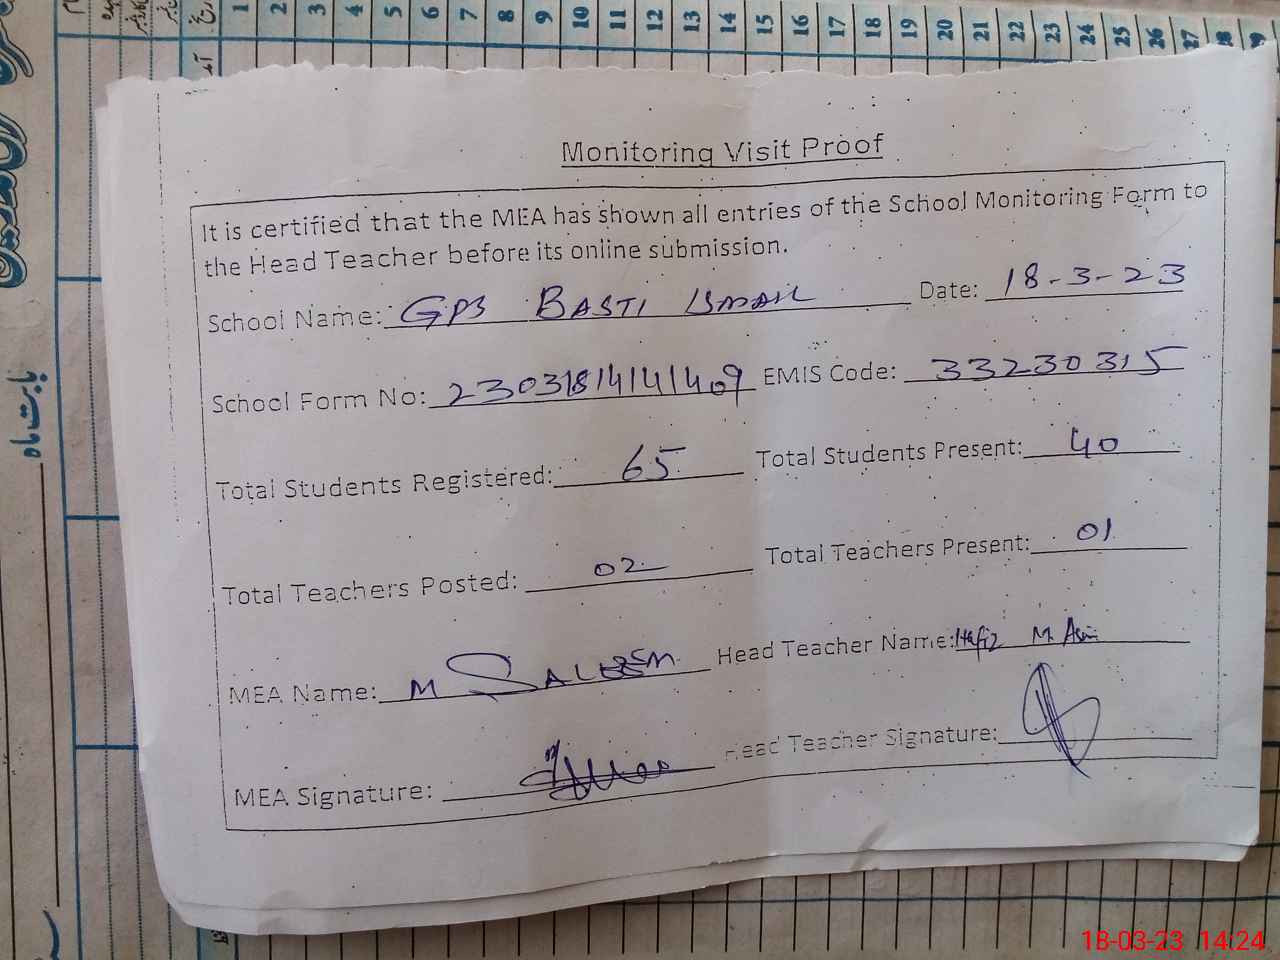 1 2 3 4 5 6 7 8 9 10 11 12 13 14 15 16 17 18 19 20 21 22 23 24 25 26 27 28 29
Monitoring Visit Proof
It is certified that the MEA has shown all entries of the School Monitoring Form to
the Head Teacher before its online submission.
School Name: GPS BASTI ISMAIL Date: 18-3-23
School Form No: 230318141409 EMIS Code: 33230315
Total Students Registered: 65 Total Students Present: 40
Total Teachers Posted: 02 Total Teachers Present: 01
MEA Name: M SALEEM Head Teacher Name: Hafiz M. Asim
MEA Signature: Head Teacher Signature:
بابت ماہ
18-03-23 14:24